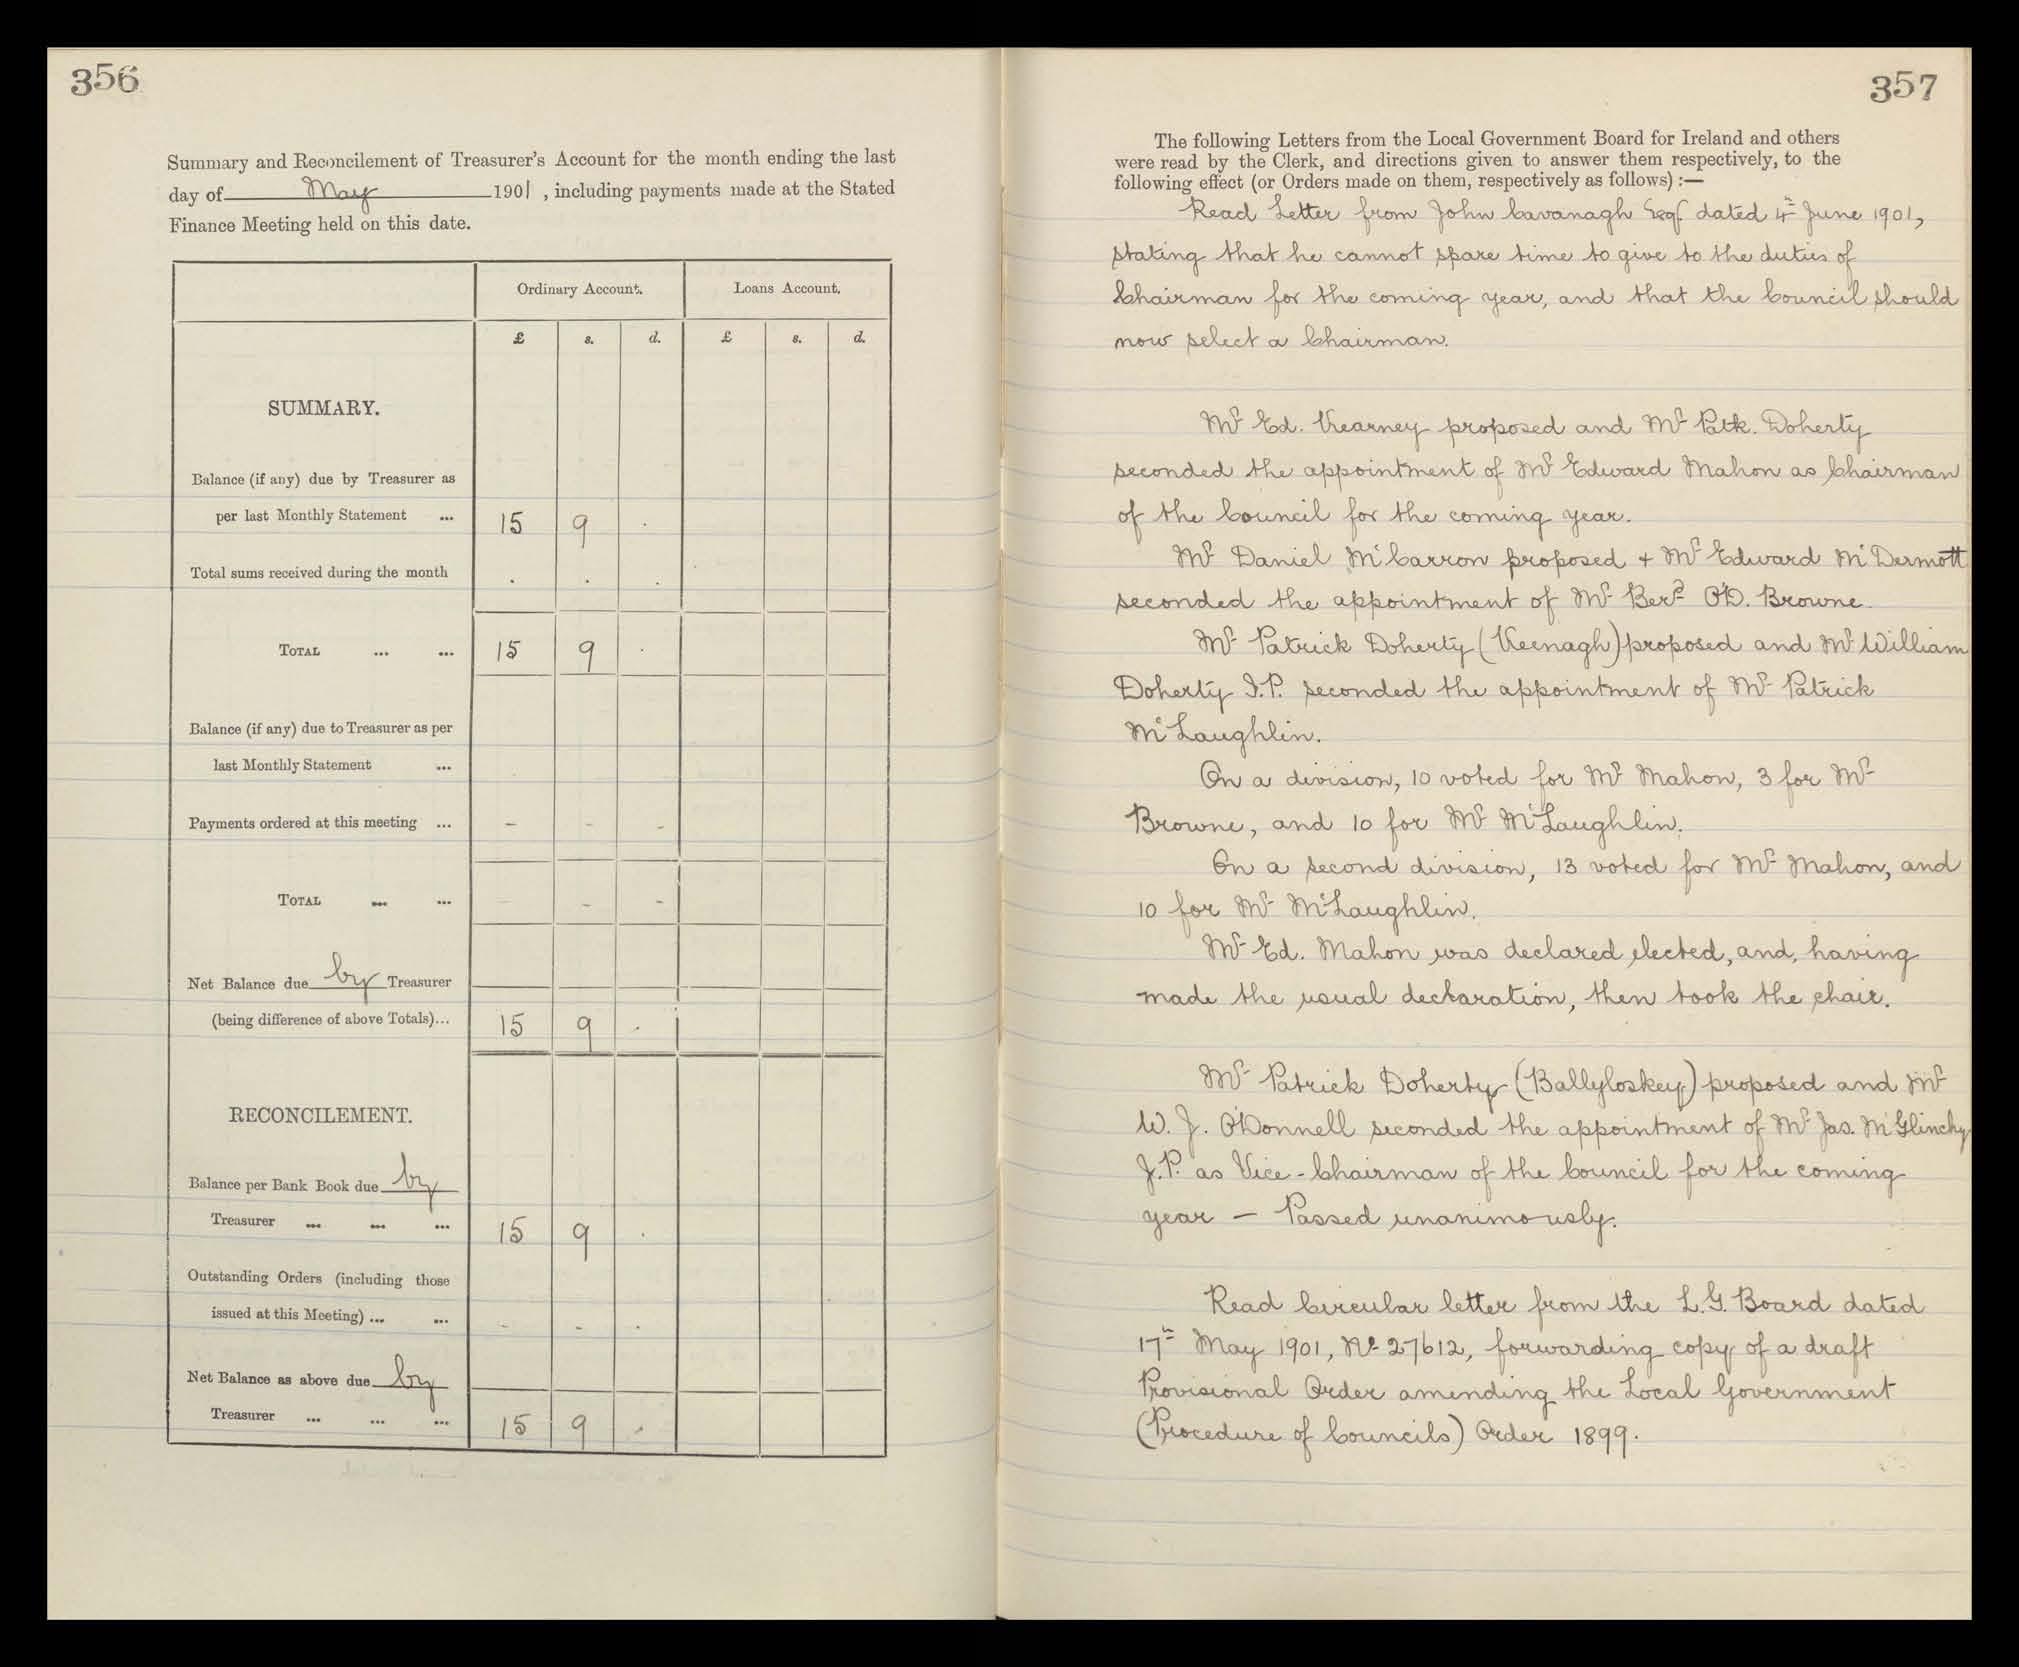 356
Summary and Reconcilement of Treasurer's Account for the month ending the last
day of May 1901, including payments made at the Stated
Finance Meeting held on this date.
Ordinary Account. Loans Account.
£ s. d. £ s. d.
SUMMARY.
Balance (if any) due by Treasurer as
per last Monthly Statement ... 15 9 .
Total sums received during the month . . .
TOTAL ... ... 15 9 .
Balance (if any) due to Treasurer as per
last Monthly Statement ...
Payments ordered at this meeting ... - - -
TOTAL ... ... - - -
Net Balance due by Treasurer
(being difference of above Totals)... 15 9 .
RECONCILEMENT.
Balance per Bank Book due by
Treasurer ... ... ... 15 9 .
Outstanding Orders (including those
issued at this Meeting) ... ... - - .
Net Balance as above due by
Treasurer ... ... ... 15 9 .
357
The following Letters from the Local Government Board for Ireland and others
were read by the Clerk, and directions given to answer them respectively, to the
following effect (or Orders made on them, respectively as follows) :—
Read Letter from John Cavanagh Esqr. dated 4th June 1901,
stating that he cannot spare time to give to the duties of
Chairman for the coming year, and that the Council should
now select a Chairman.
Mr Ed. Kearney proposed and Mr Patk. Doherty
seconded the appointment of Mr Edward Mahon as Chairman
of the Council for the coming year.
Mr Daniel McCarron proposed + Mr Edward McDermott
seconded the appointment of Mr Berd O'D. Browne.
Mr Patrick Doherty (Keenagh) proposed and Mr William
Doherty J.P. seconded the appointment of Mr Patrick
McLaughlin.
On a division, 10 voted for Mr Mahon, 3 for Mr
Browne, and 10 for Mr McLaughlin.
On a second division, 13 voted for Mr Mahon, and
10 for Mr McLaughlin.
Mr Ed. Mahon was declared elected, and, having
made the usual declaration, then took the chair.
Mr Patrick Doherty (Ballyloskey) proposed and Mr
W. J. O'Donnell seconded the appointment of Mr Jas. McGlinchy
J.P. as Vice-Chairman of the Council for the coming
year — Passed unanimously.
Read Circular letter from the L.G. Board dated
17th May 1901, No 27612, forwarding copy of a draft
Provisional Order amending the Local Government
(Procedure of Councils) Order 1899.